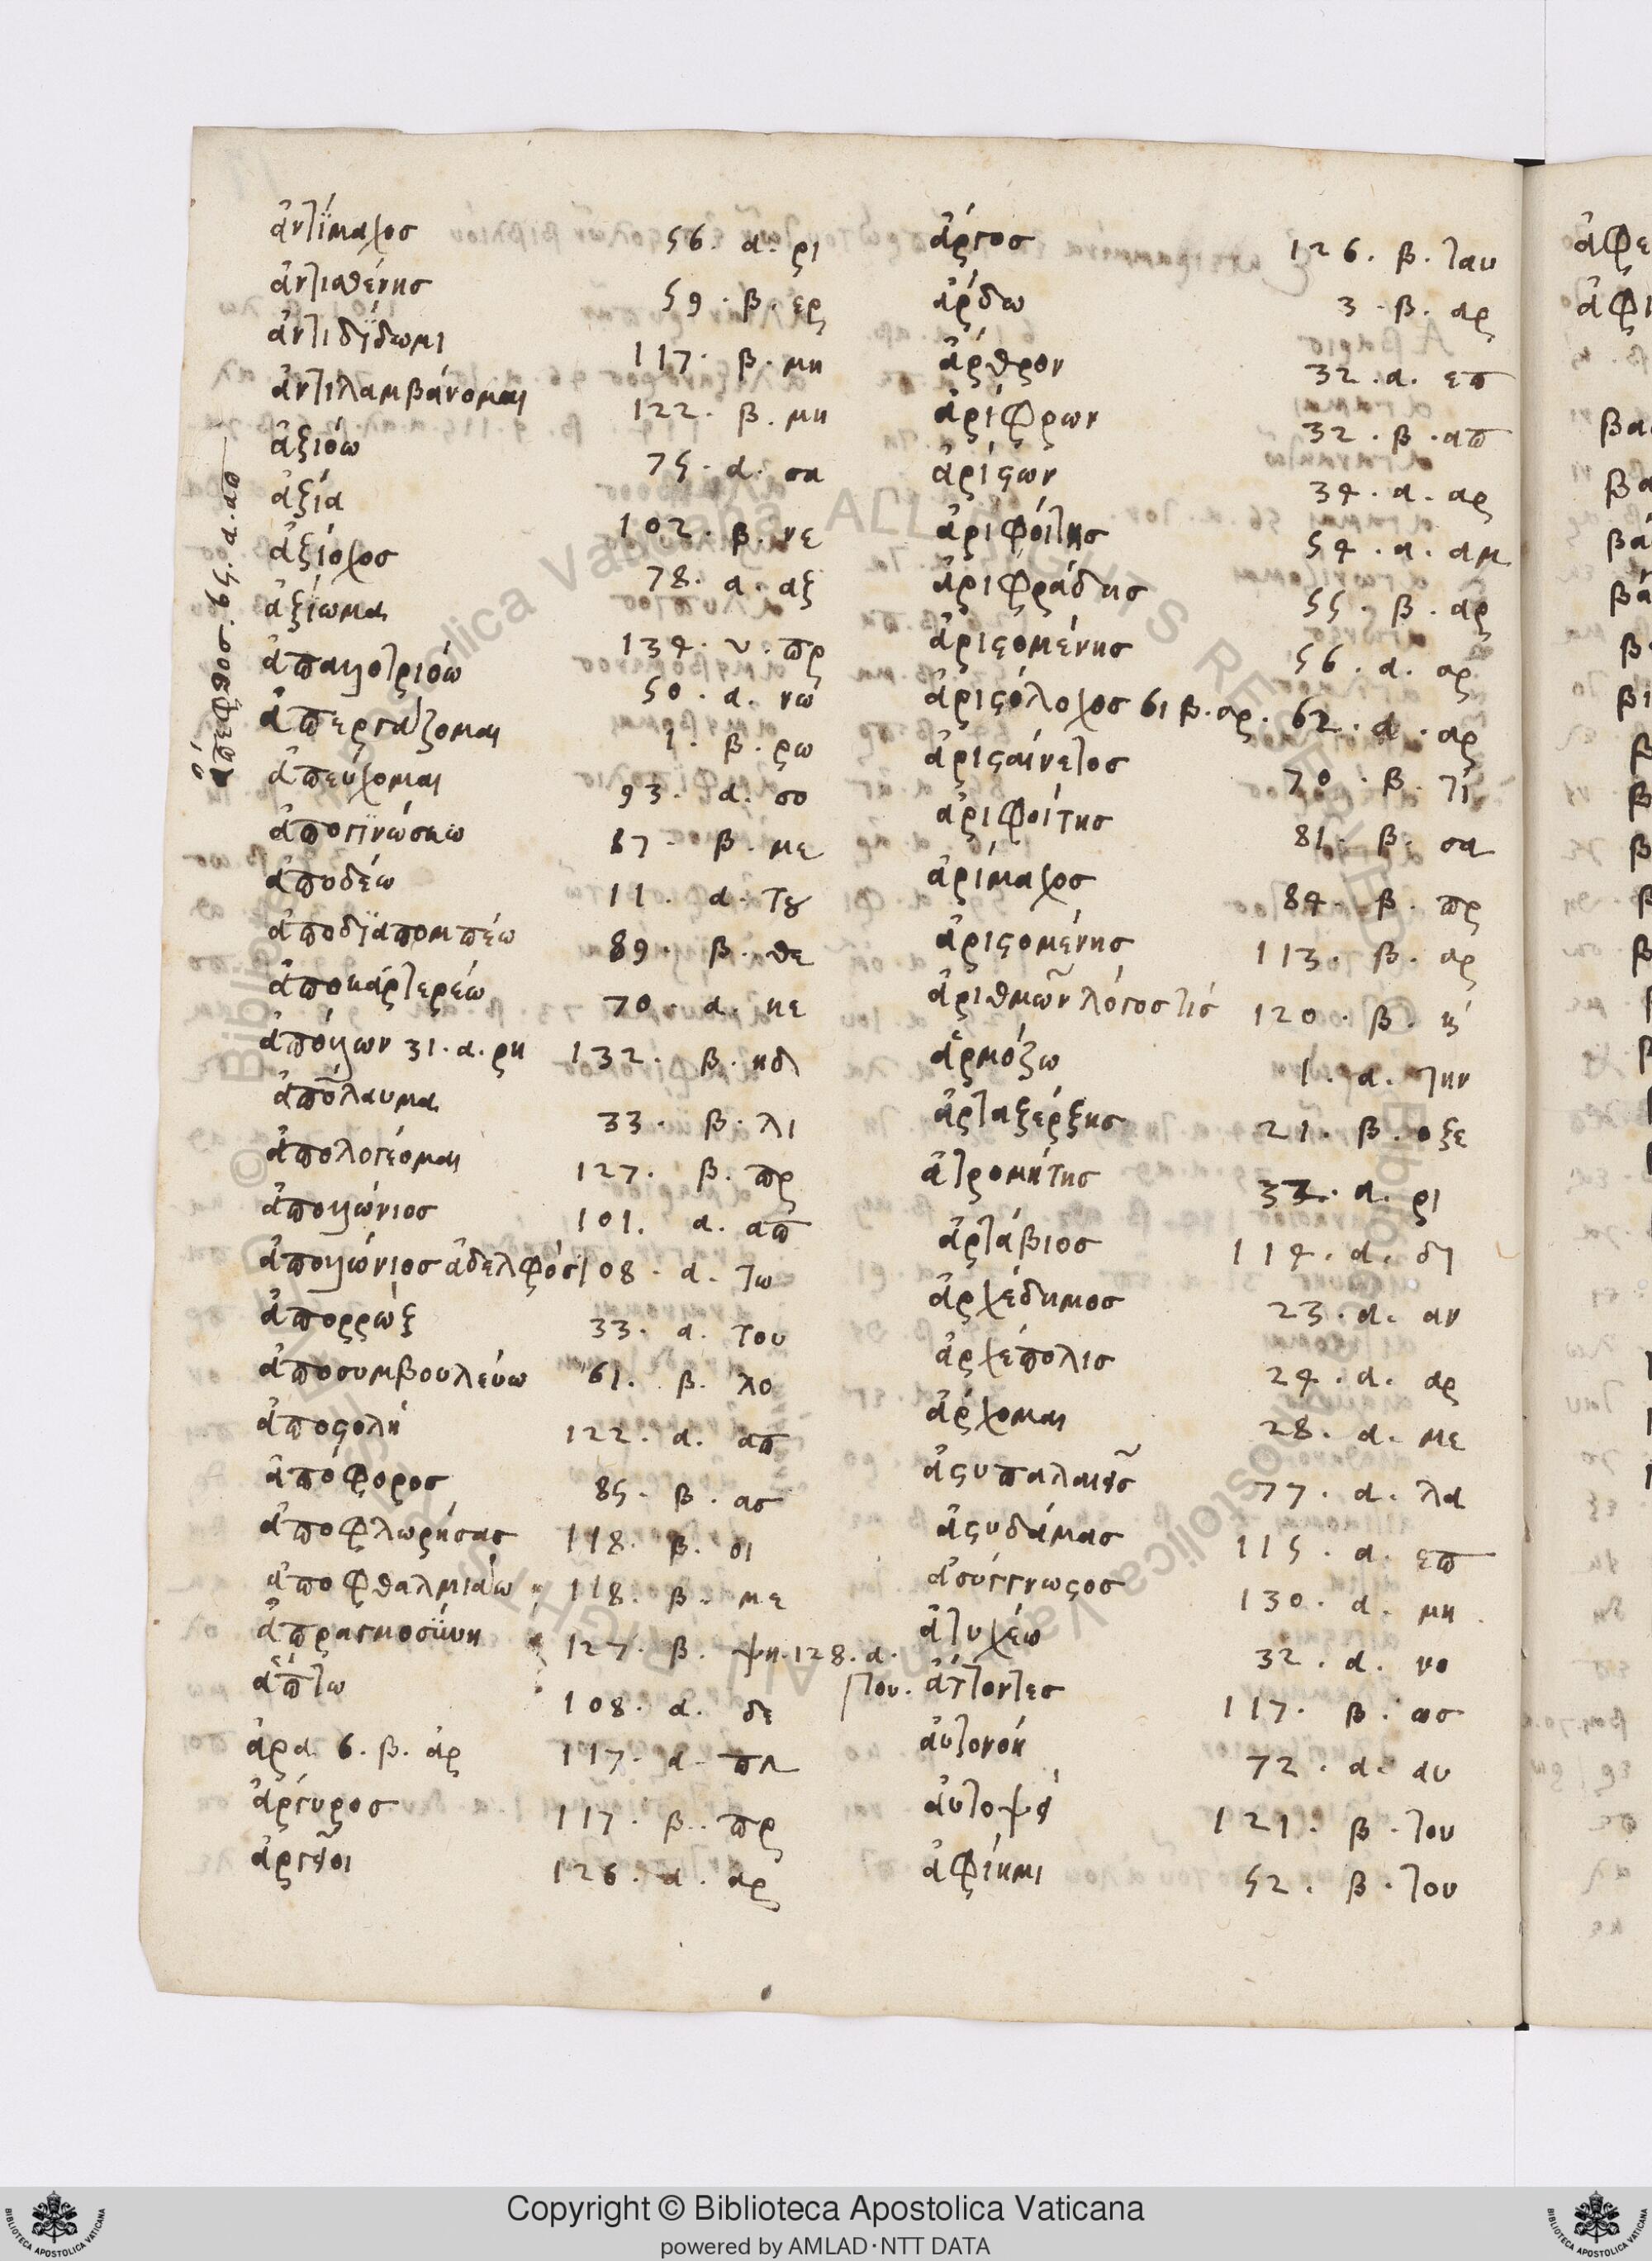 ἀντίμαχοσ 56. α. ρι
ἀντισθένησ 59. β. ερ
ἀντιδίδωμι 117. β. μη
ἀντιλαμβάνομαι 122. β. μη
ἀξιόω 75. α. σα
ἀξία 102. β. νε
ἀξίοχοσ 78. α. αξ
ἀξίωμα 134. υ. πρ
ἀπαλλοτριόω 50. α. νω
ἀπεργάζομαι 1. β. ρω
ἀπεύχομαι 93. α. σο
ἀπογινώσκω 87. β. με
ἀποδέω 11. α. του
ἀποδιαπομπέω 89. β. θε
ἀποκαρτερέω 70. α. κε
ἀπόλλων 31. α. ρη 132. β. κδ
ἀπόλαυμα 33. β. λι
ἀπολογέομαι 127. β. πρ
ἀπολλώνιοσ 101. α. απ
ἀπολλώνιοσ ἀδελφόσ 108. α. τω
ἀπορρώξ 33. α. του
ἀποσυμβουλεύω 61. β. λο
ἀποστολή 122. α. απ
ἀπόφοροσ 85. β. ασ
ἀποφλωρήσασ 118. β. οι
ἀποφθαλμιάω 118. β. με
ἀπραγμοσύνη 127. β. ψη. 128. α. του.
ἅπτω 108. α. δε
ἀρά 6. β. ἀρ 117. α. πλ
ἄργυροσ 117. β. πρ
ἀργεῖοι 126. α. αρ
ἄργοσ 126. β. ταυ
ἄρδω 3. β. αρ
ἄρθρον 32. α. επ
ἀρίφρων 32. β. απ
ἀρίστων 34. α. αρ
ἀριφόιτησ 54. α. αμ
ἀριφράδησ 55. β. αρ
ἀριστομένησ 56. α. αρ
ἀριστόλοχοσ 61 β. αρ. 62. α. αρ
ἀρισταίνετοσ 70. β. τί
ἀριφοίτησ 81. β. σα
ἀρίμαχοσ 84. β. πρ
ἀριστομένησ 113. β. αρ
ἀριθμῶν λόγοσ τίσ 120. β. ἡ
ἁρμόζω 1. α. την
ἀρταξέρξησ 21. β. οξε
ἀτρομήτησ 32. α. ρι
ἀρτάβιοσ 114. α. δι
ἀρχέδημοσ 23. α. αν
ἀρχέπολισ 24. α. αρ
ἄρχομαι 28. α. με
ἀστυπαλαιεῖσ 77. α. λα
ἀστυδάμασ 115. α. επ
ἀσύγγνωστοσ 130. α. μη.
ἀτυχέω 32. α. νο
ἄττοντεσ 117. β. ωσ
αὐτονόη 72. α. αυ
αὐτοψεί 121. β. του
ἀφίημι 52. β. του